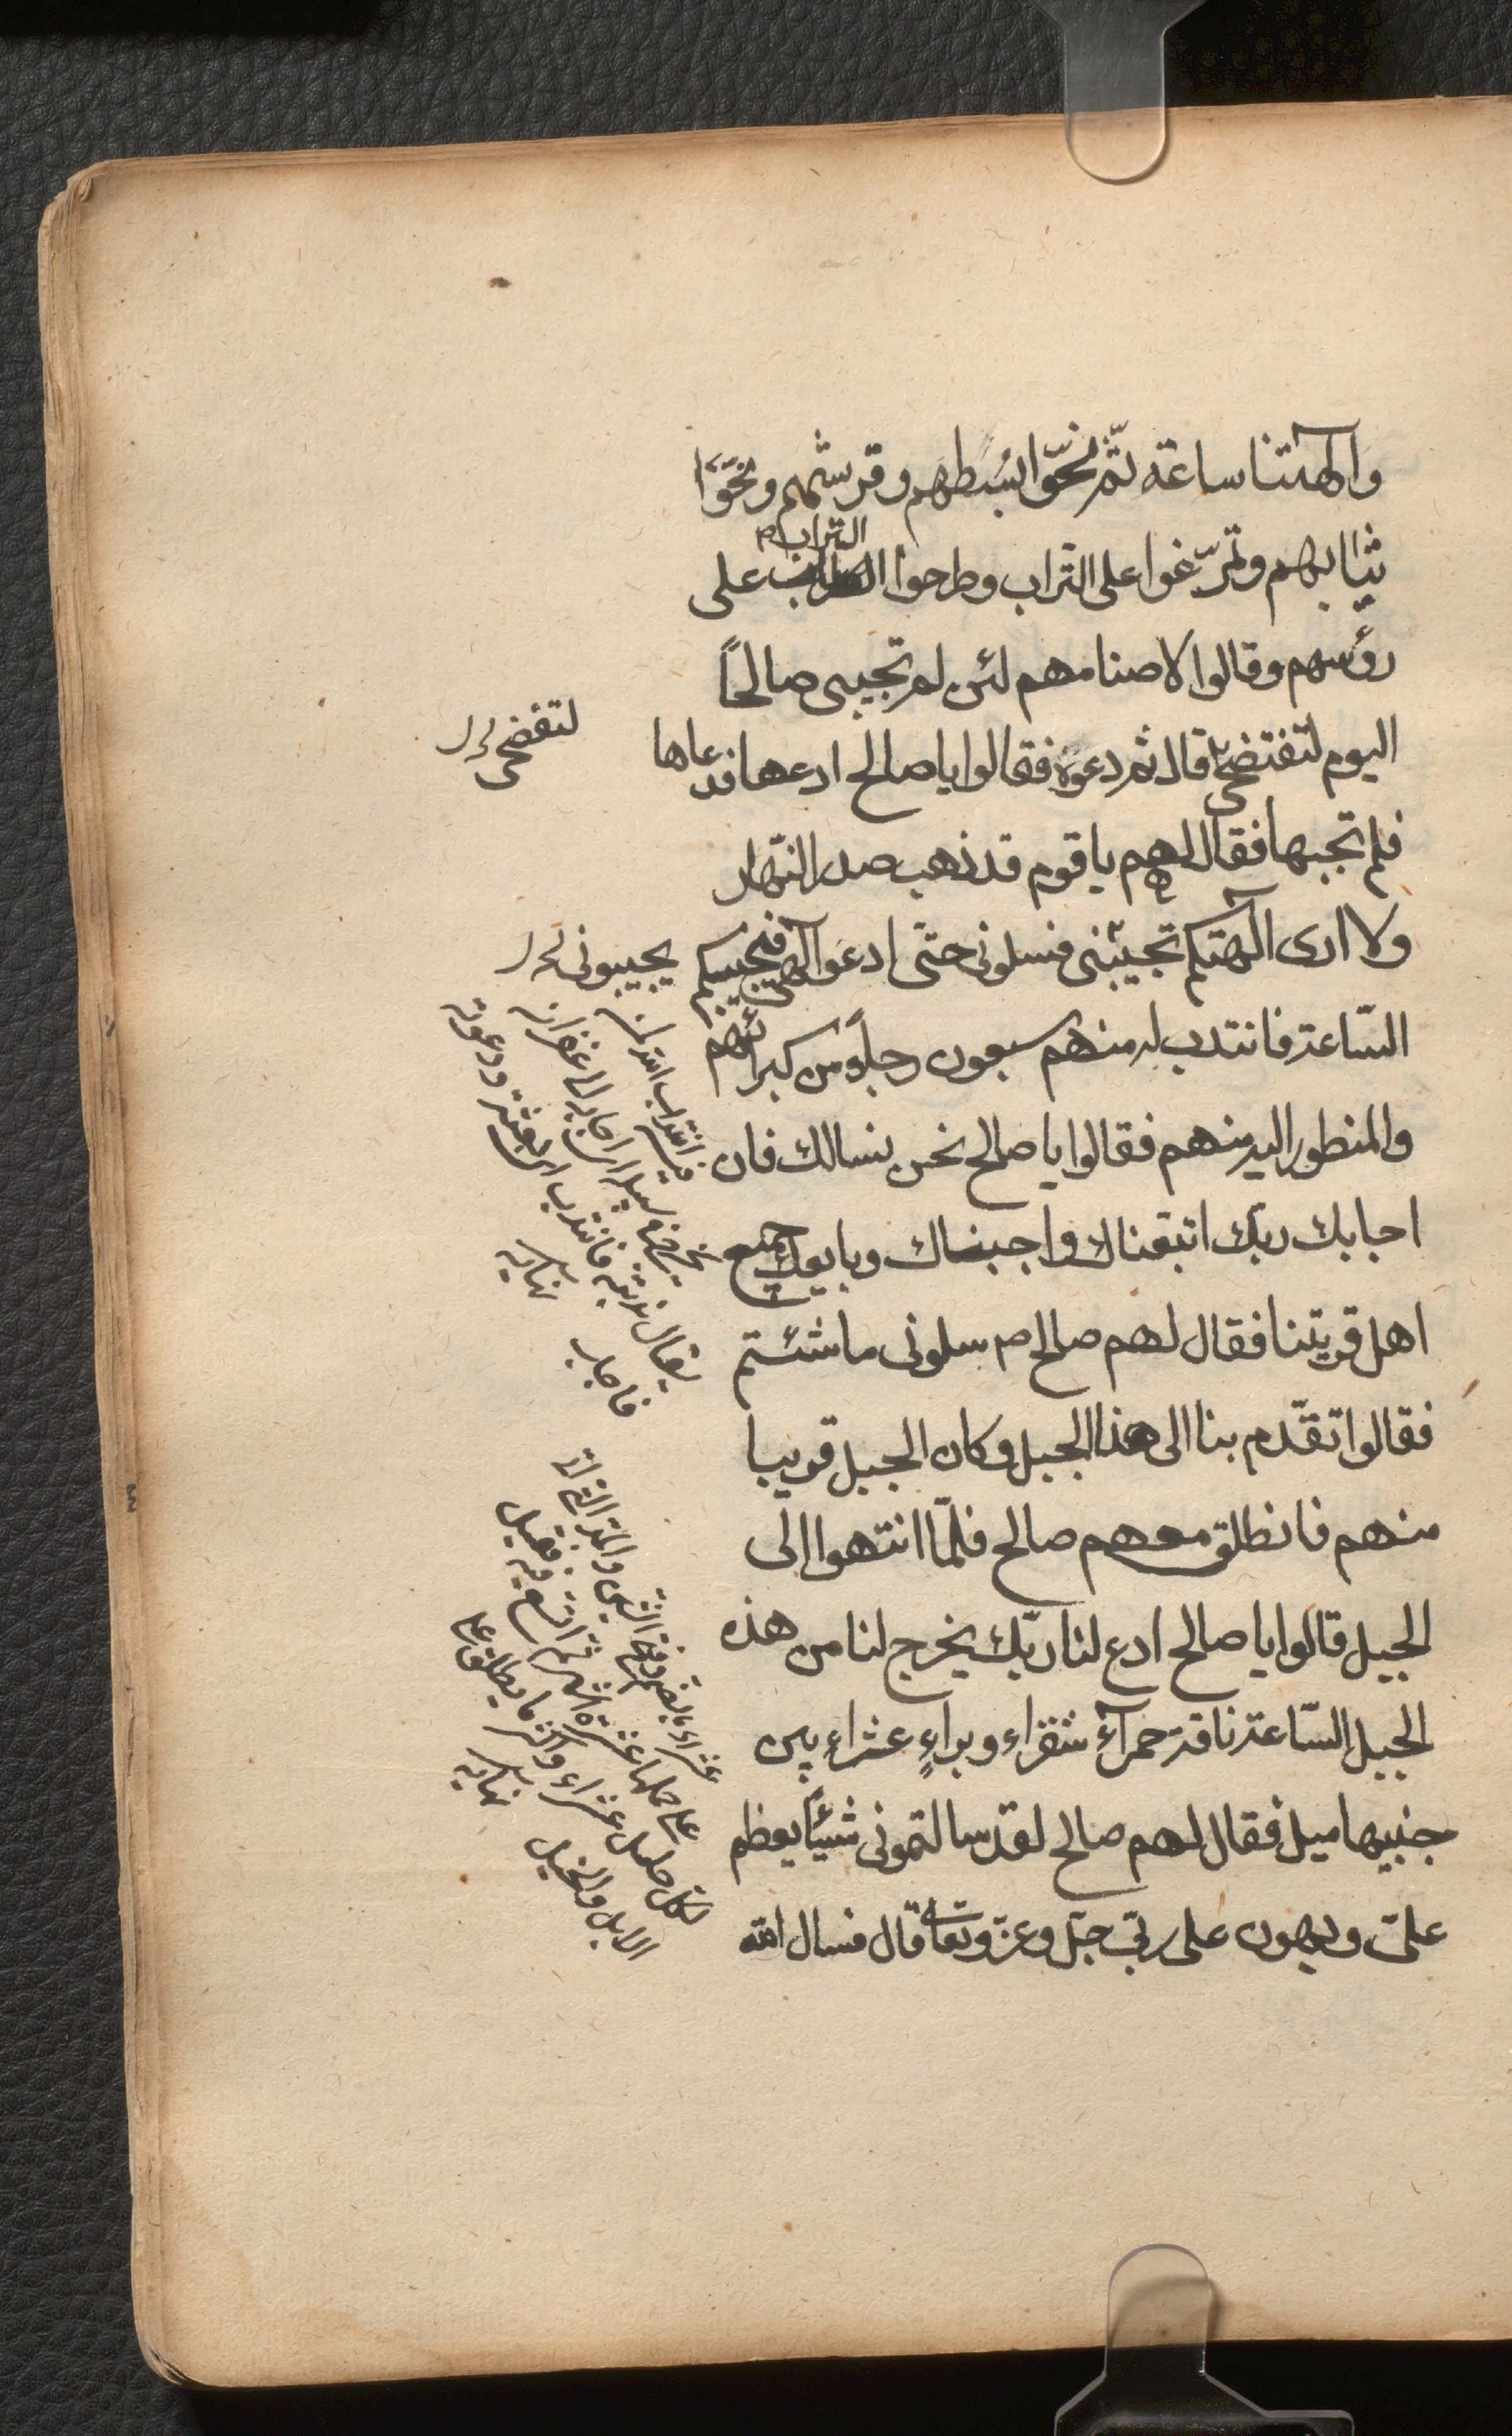 وآلهتنا ساعة ثمّ نحّوا بسُطهم وفرشهم ونحّوا
ثيابهم وتمرّغوا على التراب وطرحوا التراب على
رؤسهم وقالوا لاصنامهم لئن لم تجيبى صالحاً
اليوم لتفتضحى قال ثم دعوه فقالوا يا صالح ادعها فدعاها
فلم تجبها فقال لهم يا قوم قد ذهب صدر النّهار
ولا ارى آلهتكم تجيبنى فسلونى حتّى ادعو آلهى فيجيبكم
السّاعة فانتدب له منهم سبعون رجلاً من كبرائهم
والمنظور اليه منهم فقالوا يا صالح نحن نسالك فان
اجابك ربّك اتبعناك واجبناك وبايعك جميع
اهل قريتنا فقال لهم صالح م سلونى ما شئتم
فقالوا تقدّم بنا الى هذا الجبل وكان الجبل قريبا
منهم فانطلق معهم صالح فلمّا انتهوا الى
الجبل قالوا يا صالح ادع لنا ربّك يخرج لنا من هذه
الجبل السّاعة ناقة حمرآء شقراء وبراءٍ عشراء بين
جنبيها ميل فقال لهم صالح لقد سالتمونى شيئاً يعظم
علىّ ويهون على ربّى جلّ وعزّ وتعالى قال فسال الله
لتفضحى
يجيبونى
انتدب الله
يخرج فى سبيله اى اجابه الى غفرانه
يقال ندبته فانتدب اى بعثته ودعوته
فاجاب نهاية
عشراء بالضم وفتح الشين والمد التى اتى
على حملها عشرة اشهر ثم اتسع فيه فقيل
لكل حامل عشراء واكثر ما يطلق على
الابل والخيل نهاية